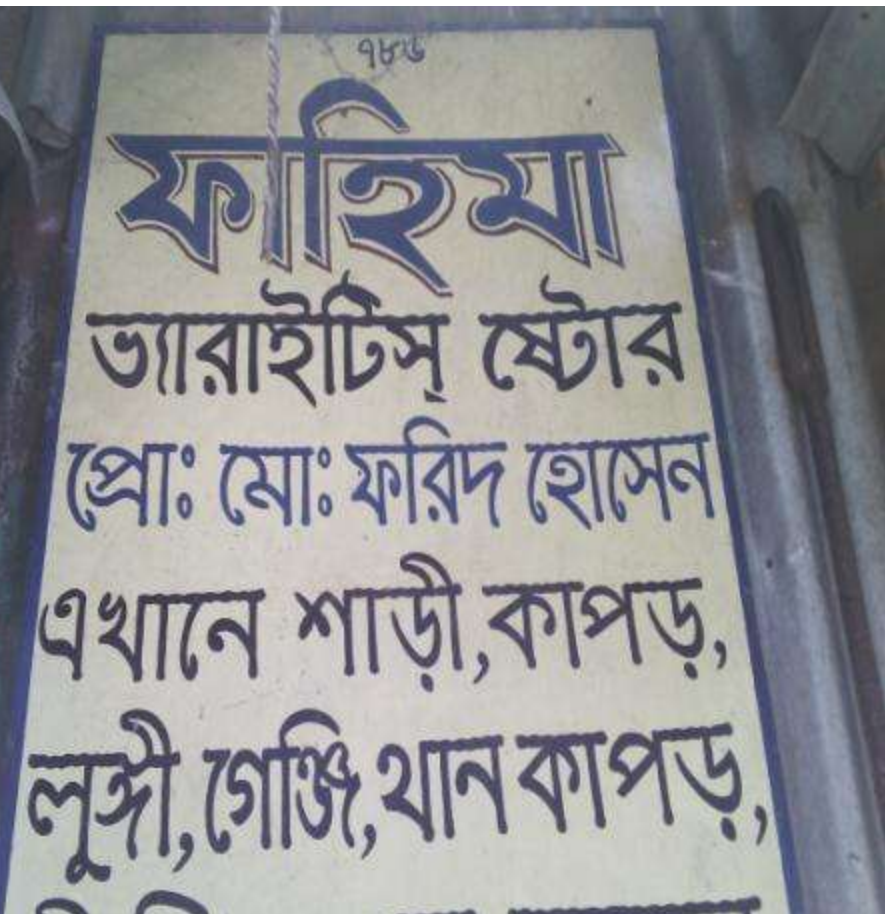 ৭৮৬
ফাহিমা
ভ্যারাইটিস্ ষ্টোর
প্রো: মো: ফরিদ হোসেন
এখানে শাড়ী,কাপড়,
লুঙ্গী,গেঞ্জি,থান কাপড়,